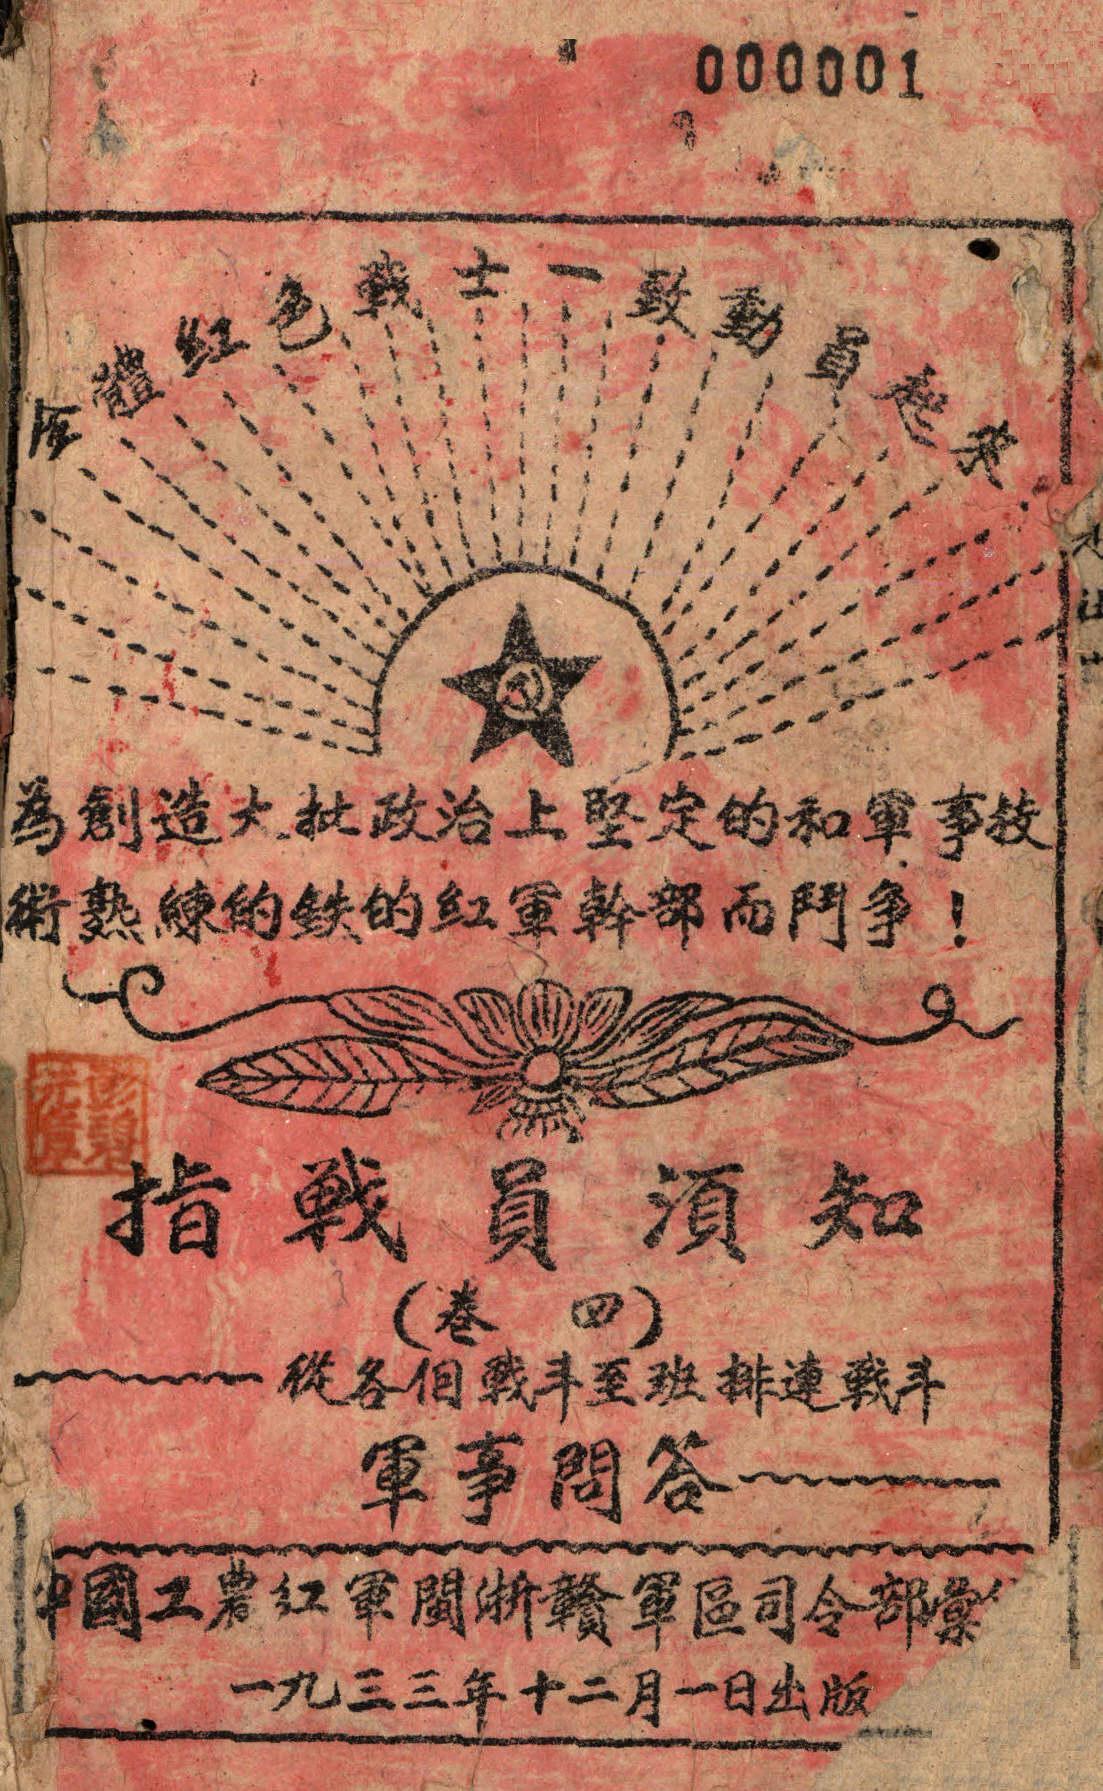 000001
全體紅色戰士一致動員起來
為創造大批政治上堅定的和軍事技
術熟練的鉄的紅軍幹部而鬥争！
指戰員須知
(卷四)
從各個戰斗至班排連戰斗
軍事問答
中國工農紅軍閩浙贛軍區司令部彙
一九三三年十二月一日出版